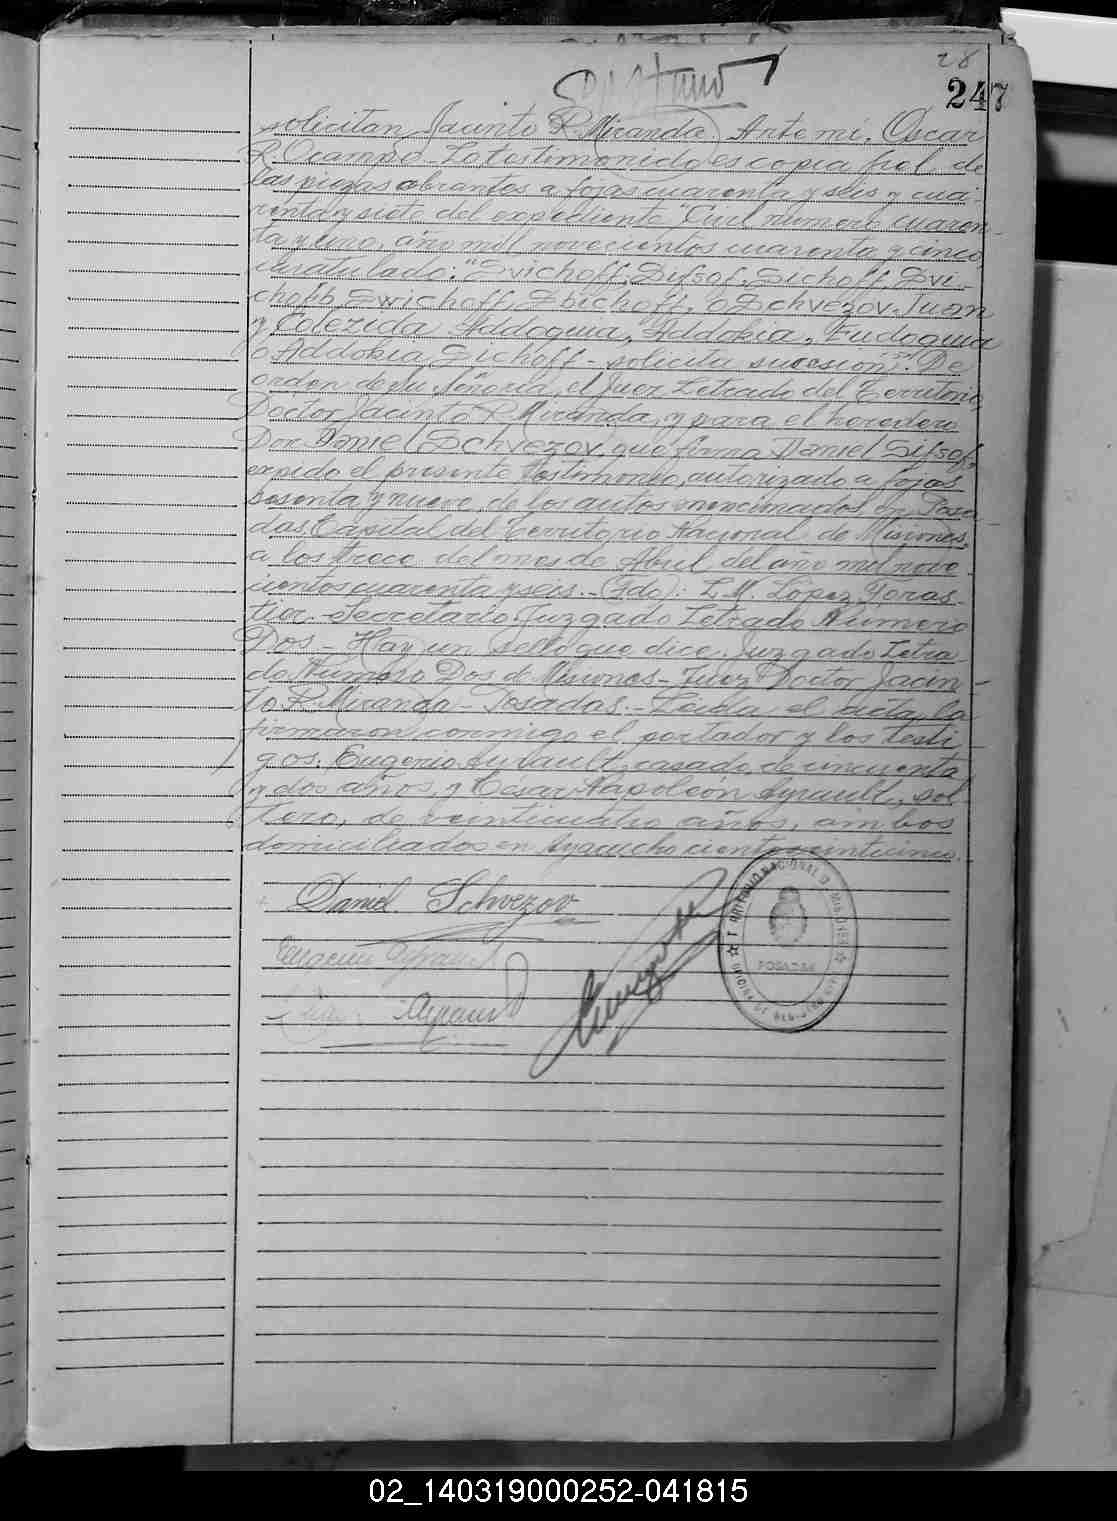 28
247
solicitan Jacinto R. Miranda Ante mi. Oscar
R Ocampo - Lo testimoniado es copia fiel de
las piezas obrantes a fojas cuarenta y seis y cua-
renta y siete del expediente "Civil número cuaren-
ta y uno, año mil novecientos cuarenta y cinco,
caratulado: "Svichoff, Sifsof, Sichoff, Svi-
choff, Swichoff, Sbichoff, o Schvezov, Juan
y Addoquia, Eudoquia
o Addokia Sichoff - solicitan sucesión". De
orden de su Señoría, el Juez Letrado del Territorio,
Doctor Jacinto R Miranda, y para el heredero
Don Daniel Schvezov que firma Daniel Sifsof,
expido el presente testimonio, autorizado a fojas
sesenta y nueve, de los autos mencionados, en Posa-
das Capital del Territorio Nacional de Misiones,
a los trece del mes de Abril del año mil nove-
cientos cuarenta y seis. - (Fdo): L. M. López Foras-
tier - Secretario Juzgado Letrado Número
Dos - Hay un sello que dice: Juzgado Letra-
do Número Dos de Misiones - Juez Doctor Jacin-
to R. Miranda - Posadas. - Leída el acta la
firmaron conmigo el portador y los testi-
gos: Eugenio Ayrault, casado, de cincuenta
y dos años, y César Napoleón Ayrault, sol-
tero, de veinticuatro años, ambos
domiciliados en Ayacucho ciento veinticinco. -
Daniel Schvezov
Ayrault
Ayrault
POSADAS
02_140319000252-041815